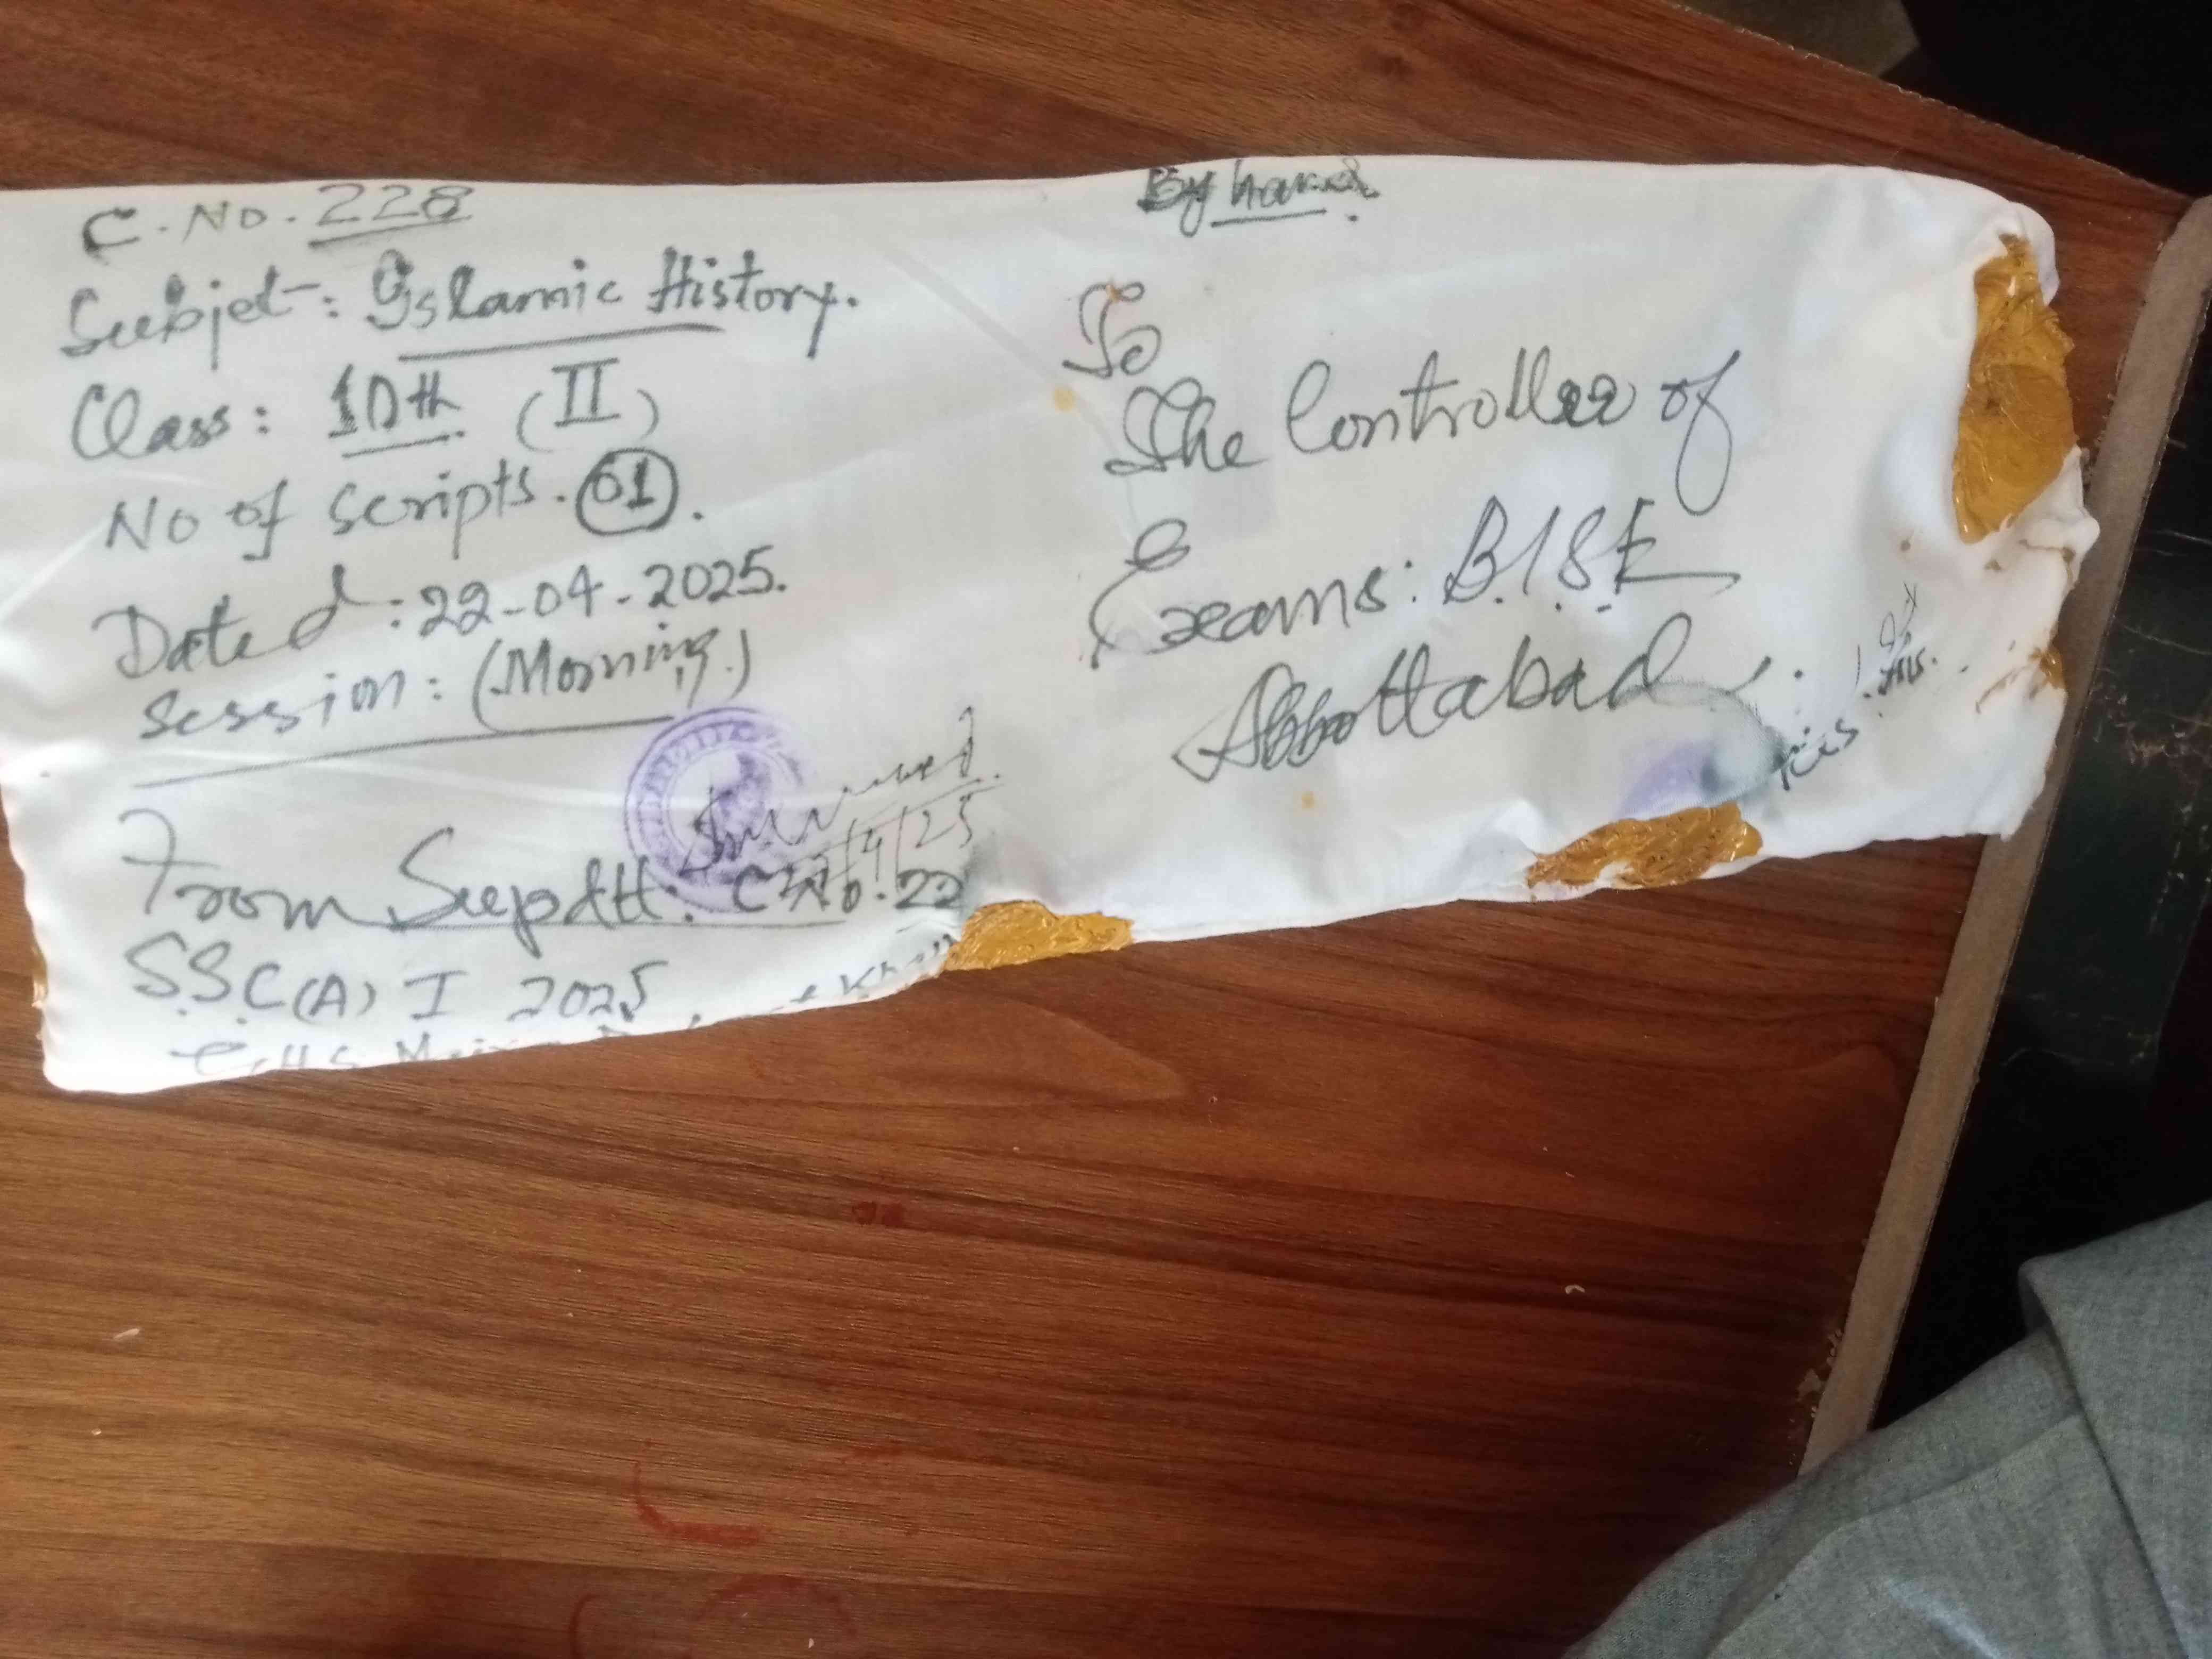 C. No. 228
Subjet: Islamic History.
Class: 10th (II)
No of scripts. 01.
Dated: 22-04-2025.
Session: (Morning)
From Supdtt: C No. 22
S.S.C(A) I 2025
By hand.
To
The Controller of
Exams: B.I.S.E
Abbottabad